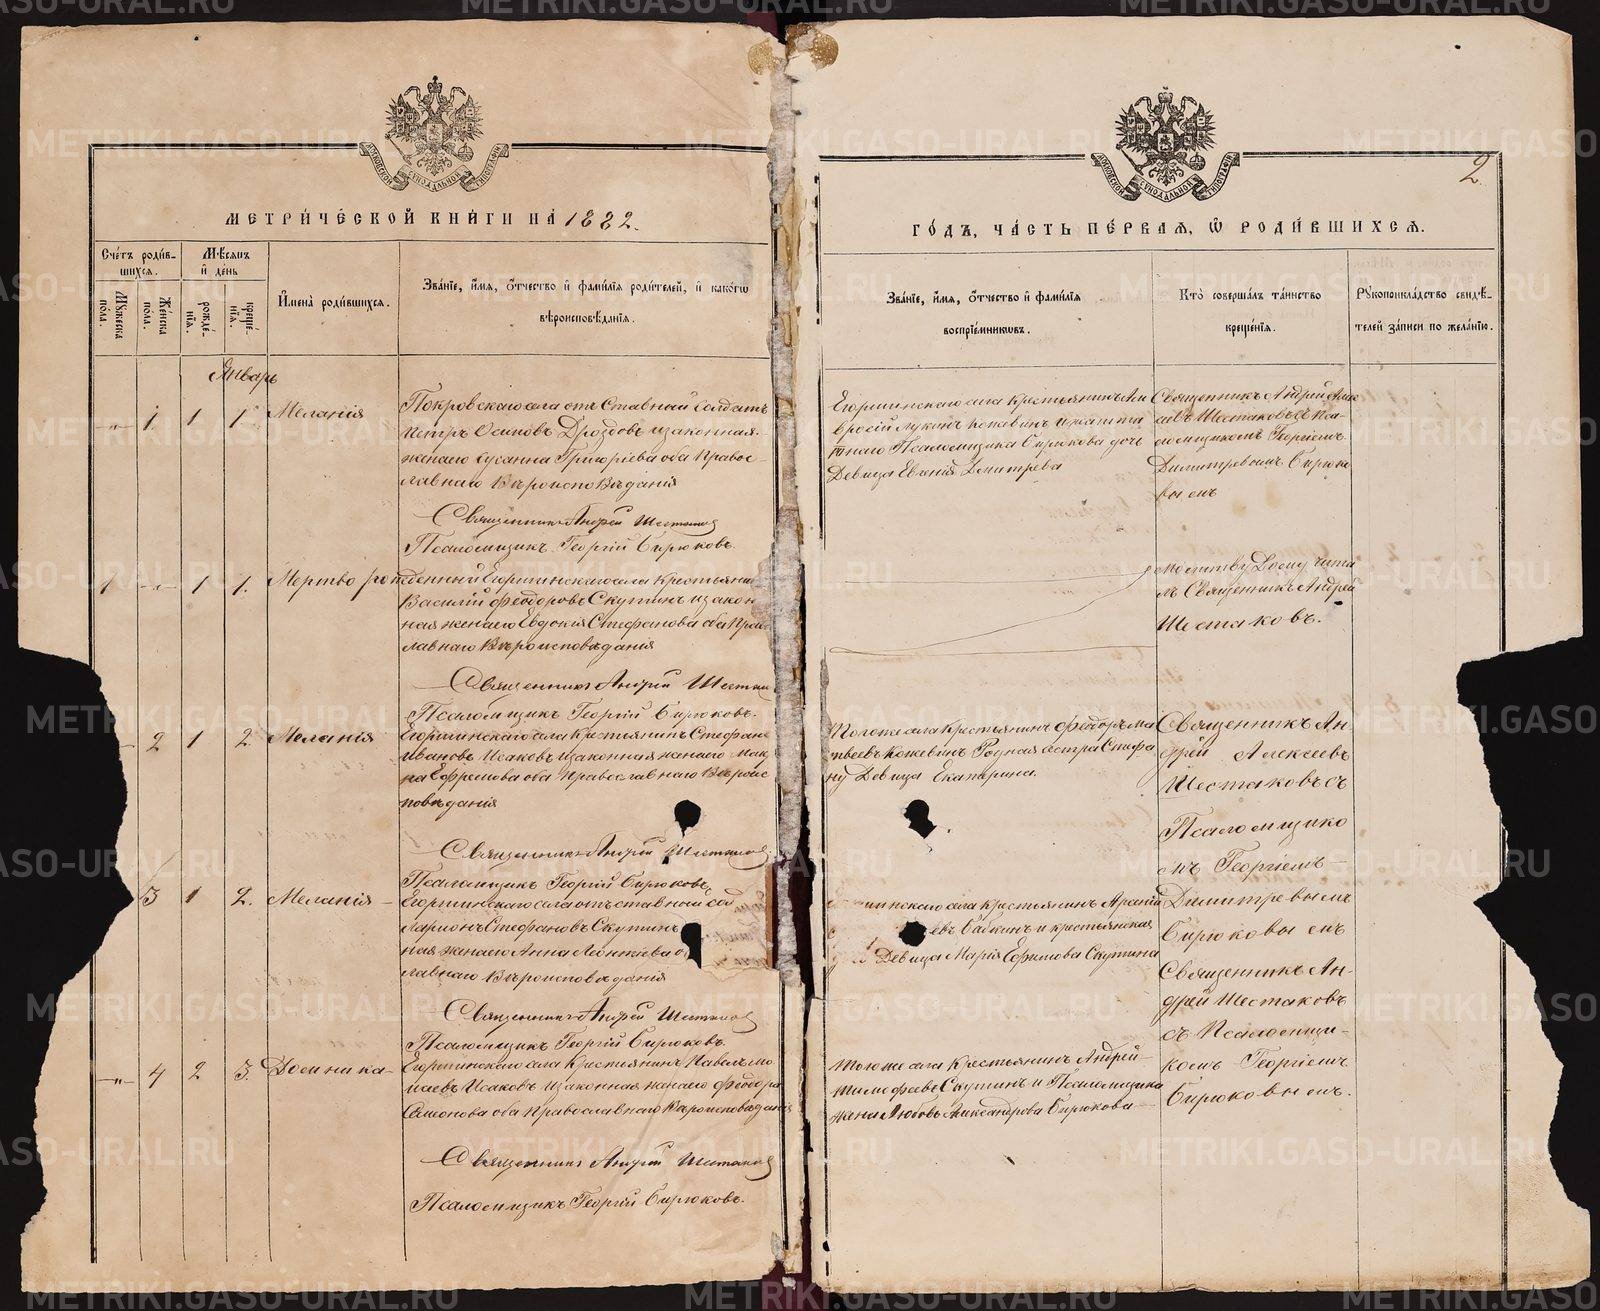 МОСКОВСКОЙ СУНОДАЛЬНОЙ ТИПОГРАФІИ
МЕТРИ́ЧЕСКОЙ КНИ́ГИ НА 1882.
Сче́тъ роди́в-
шихся.
Мꙋжеска пола.
Же́нска пола.
Мѣсяцъ
и҆ де́нь
рожде́нїя.
креще́нїя.
И҆мена̀ роди́вшихся.
Зва́нїе, и҆́мя, ѻ҆́тчество и҆ фами́лїя роди́телей, и҆ како́гѡ
вѣроисповѣ́данїя.
Январь
-"- 1 1 1 Меланія
Покровскаго села отставной солдатъ
Петръ Осиповъ Дроздовъ и законная
жена его Сусанна Григоріева оба Правос-
лавнаго Вѣроисповѣданія
Священникъ Андрей Шестаковъ
Псаломщикъ Георгій Бирюковъ.
1 -"- 1 1. Мертворожденный Егоршинскаго села крестьянинъ
Василій Феодоровъ Скутинъ и закон
ная жена его Евдокія Стефанова оба Прав
лавнаго Вѣроисповѣданія
Священникъ Андрей Шестаков
Псаломщикъ Георгій Бирюковъ.
2 1 2 Меланія
Егоршинскаго села крестьянинъ Стефанъ
Ивановъ Исаковъ и законная жена его
Ефремова оба Православнаго Вѣроис
повѣданія
Священникъ Андрей Шестаковъ
Псаломщикъ Георгій Бирюковъ
3 1 2. Меланія -
Егоршинскаго села отставной сол
Ларионъ Стефановъ Скутинъ
ная жена его Анна Леонтіева о
лавнаго Вѣроисповѣданія
Священникъ Андрей Шестаковъ
Псаломщикъ Георгій Бирюковъ.
-"- 4 2 3. Домника -
Егоршинскаго села Крестьянинъ Павелъ
Исаковъ и законная жена его Феодора
Симонова оба Православнаго Вѣроисповѣданія
Священникъ Андрей Шестаковъ
Псаломщикъ Георгій Бирюковъ.
2
МОСКОВСКОЙ СУНОДАЛЬНОЙ ТИПОГРАФІИ
ГО́ДЪ, ЧА́СТЬ ПЕ́РВАЯ, Ѽ РОДИ́ВШИХСЯ.
Зва́нїе, и҆́мя, ѻ҆́тчество и҆ фами́лїя
воспрїе́мникѡвъ.
Кто̀ соверша́лъ та́инство
креще́нїя.
Рꙋкоприкла́дство свидѣ́-
телей за́писи по жела́нїю.
Егоршинскаго села крестьянинъ Ам
вросій Лукинъ Кожевинъ и
Псаломщика Бирюкова дочь
Девица Евгенія Димитрева
Священникъ Андрей Алек
сѣевъ Шестаковъ съ Пса-
ломщикомъ Георгіемъ
Димитревымъ Бирюко
вымъ
Молитву Дому чита
лъ Священникъ Андрей
Шестаковъ.
Тогоже села крестьянинъ Феодоръ Ма
твеевъ Кожевинъ Родная сестра Стефа
ну Девица Екатерина.
Священникъ Ан-
дрей Алексеевъ
Шестаковъ съ
Псаломщико
мъ Георгіемъ -
Димитревымъ
Бирюковымъ
шинскаго села крестьянинъ
евъ Бабкинъ и крестьянская
Девица Марія Ефимова Скутина
Священникъ Ан-
дрей Шестаковъ
съ Псаломщи-
комъ Георгіемъ
Бирюковымъ.
Тогоже села крестьянинъ Андрей
Тимофеевъ Скутинъ и Псаломщика
жена Любовь Александрова Бирюкова
METRIKI.GASO-URAL.RU